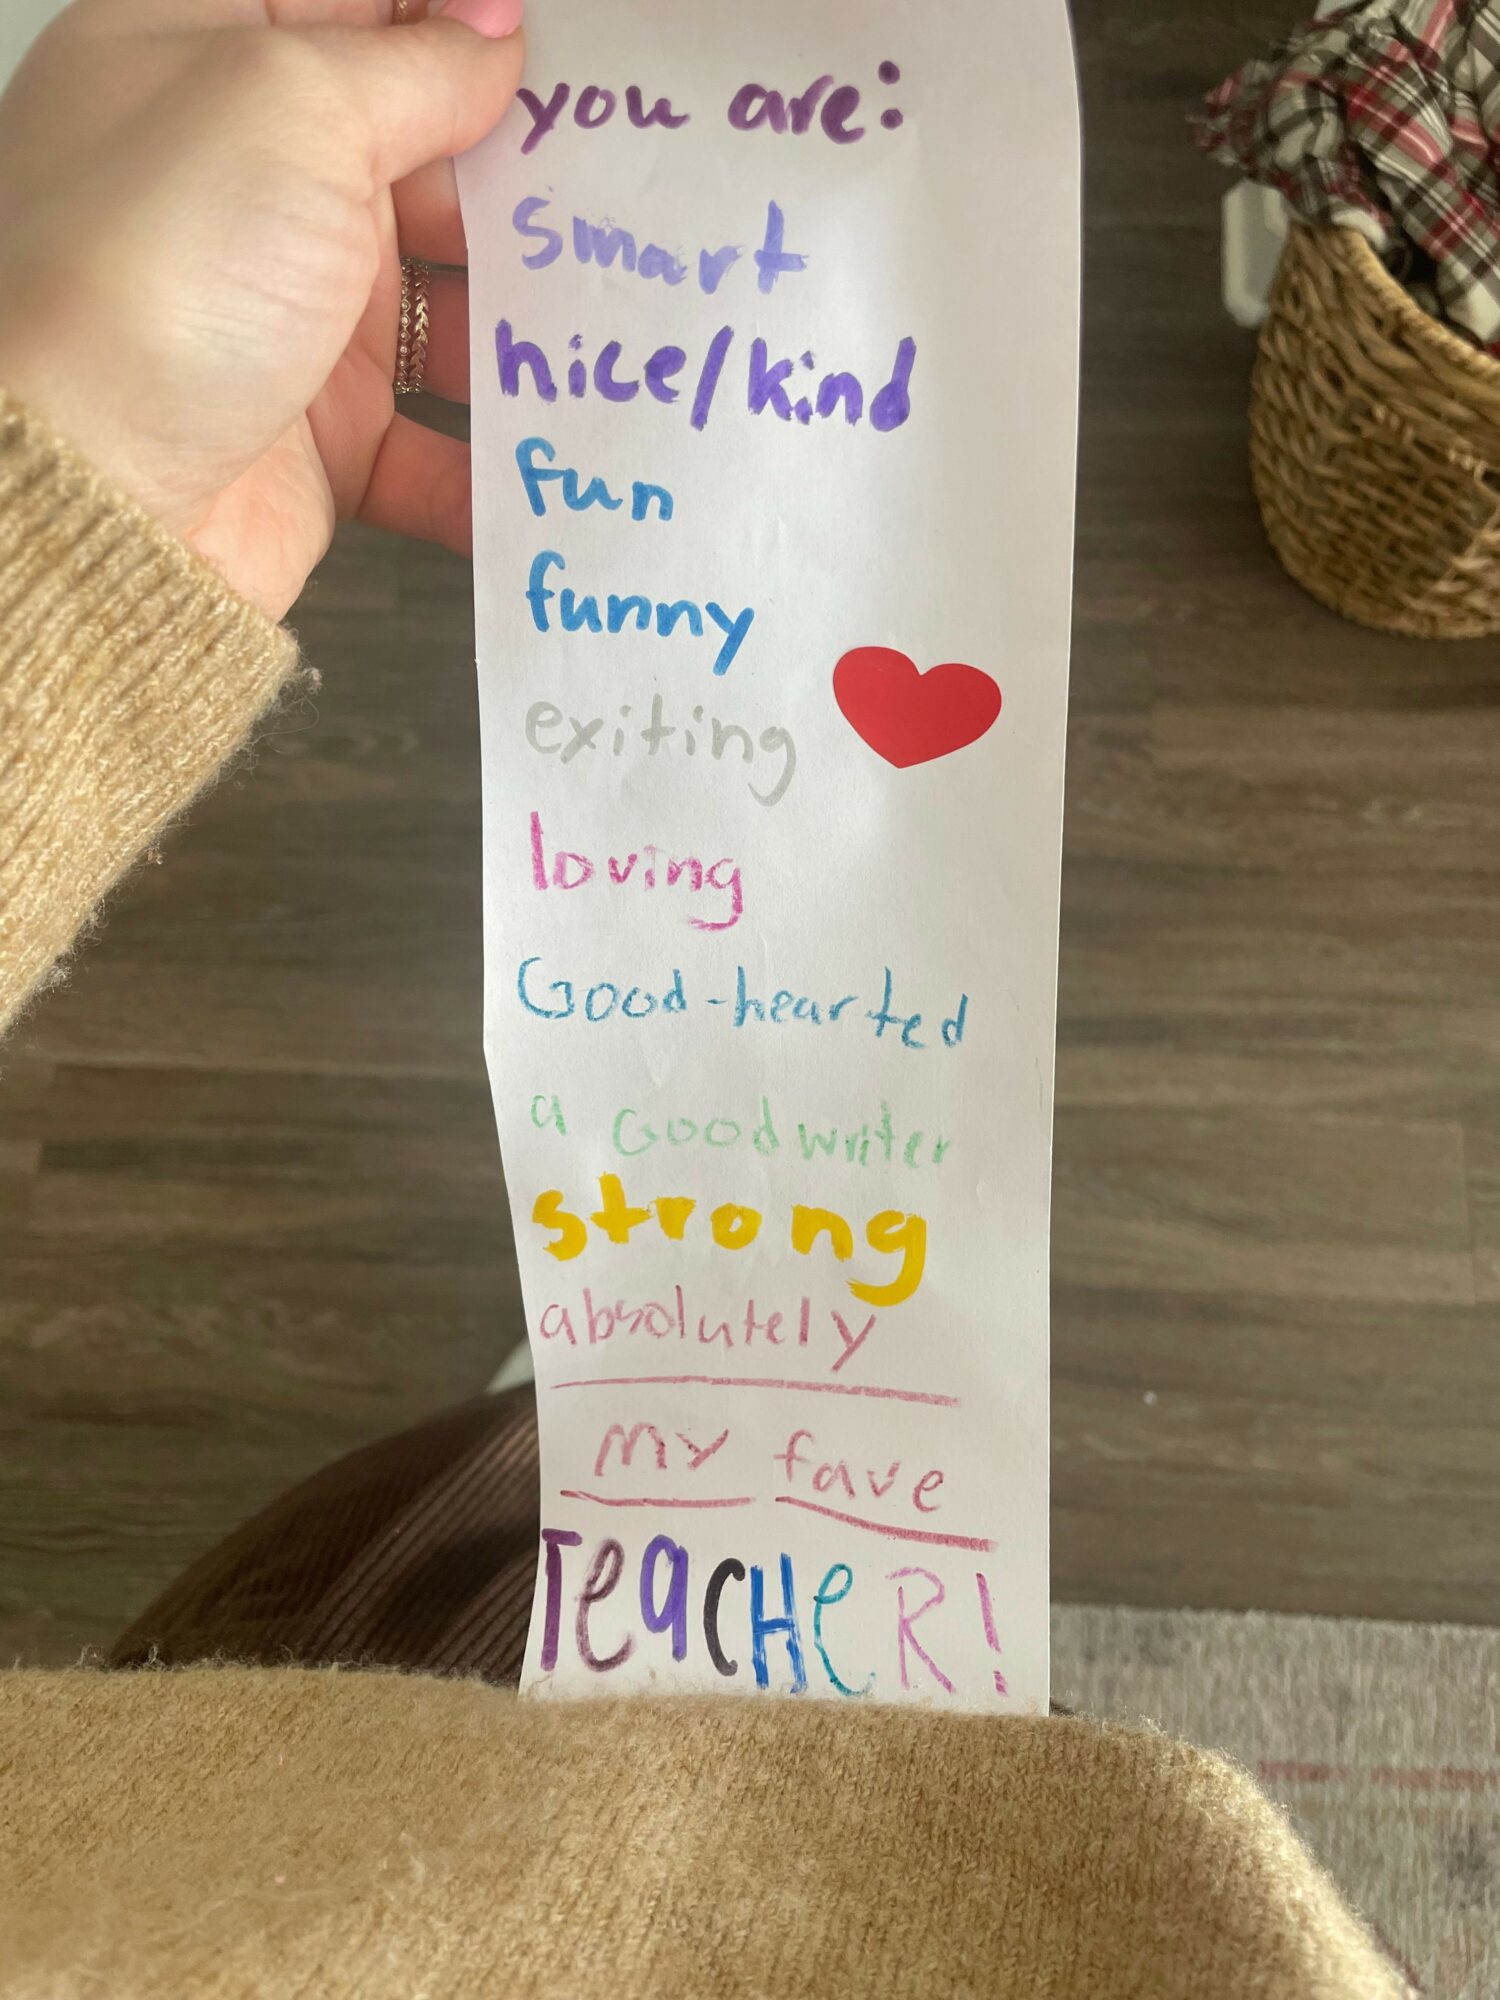 you are:
smart
nice/kind
fun
funny
exiting
loving
Good-hearted
a Good writer
strong
absolutely
my fave
TeacHeR!